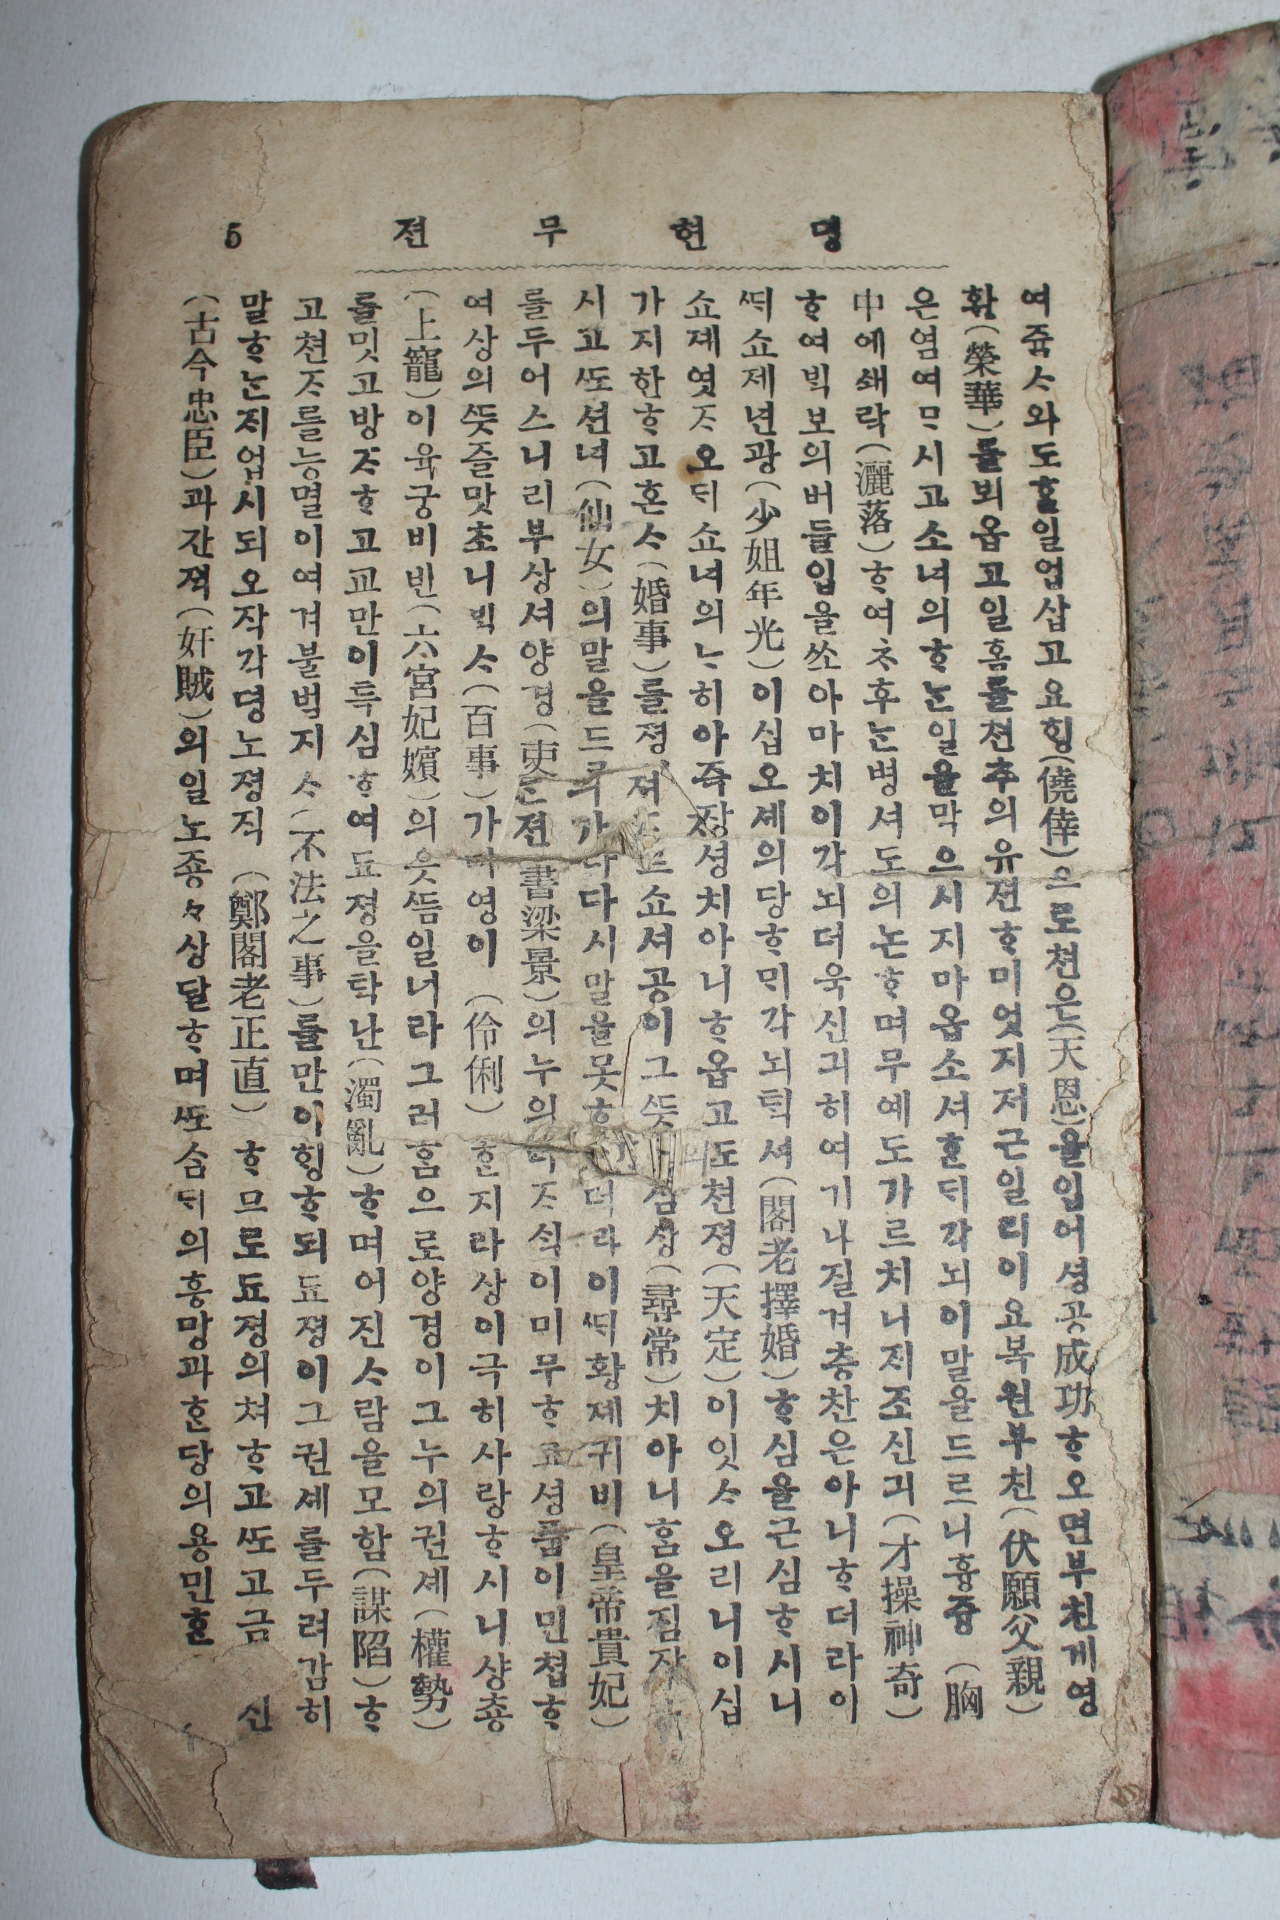 명현무젼 5
여쥽ᄉᆞ와도ᄒᆞᆯ일업삽고요ᄒᆡᆼ(僥倖)으로쳔은(天恩)을입어셩공成功ᄒᆞ오면부친게영
화(榮華)를뵈옵고일홈를쳔추의유젼ᄒᆞ미엇지저근일리이요복원부친(伏願父親)
은염여ᄆᆞ시고소녀의ᄒᆞᄂᆞᆫ일을막으시지마옵소셔ᄒᆞᆫᄃᆡ각뇌이말을드르니흉즁(胸
中에쇄락(灑落)ᄒᆞ여ᄎᆞ후ᄂᆞᆫ병셔도의논ᄒᆞ며무예도가르치니ᄌᆡ조신긔(才操神奇)
ᄒᆞ여ᄇᆡᆨ보의버들입을쏘아마치이각뇌더욱신긔히여기나질겨층찬은아니ᄒᆞ더라이
ᄯᆡ쇼제년광(少姐年光)이십오셰의당ᄒᆞᄆᆡ각뇌ᄐᆡᆨ셔(閣老擇婚)ᄒᆞ심을근심ᄒᆞ시니
쇼졔엿ᄌᆞ오ᄃᆡ쇼녀의ᄂᆞ히아즉장셩치아니ᄒᆞ옵고ᄯᅩ쳔졍(天定)이잇ᄉᆞ오리니이십
가지한ᄒᆞ고혼ᄉᆞ(婚事)를졍 쇼셔공이그ᄯᅳᆺ 심상(尋常)치아니홈을짐작ᄒᆞ
시고ᄯᅩ션녀(仙女)의말을드르 가 다시말을못ᄒᆞ 더라이ᄯᆡ황졔귀비(皇帝貴妃)
를두어스니리부상셔양경(吏 書梁景)의누의 ᄌᆞ식이미무ᄒᆞ고셩품이민쳡ᄒᆞ
여상의ᄯᅳᆺ즐맛초니ᄇᆡᆨᄉᆞ(百事)가 영이(伶俐)ᄒᆞᆫ지라상이극히사랑ᄒᆞ시니샹춍
(上寵)이육궁비빈(六宮妃嬪)의읏듬일너라그러홈으로양경이그누의권셰(權勢)
를밋고방ᄌᆞᄒᆞ고교만이특심ᄒᆞ여됴졍을탁난(濁亂)ᄒᆞ며어진ᄉᆞ람을모함(謀陷)ᄒᆞ
고쳔ᄌᆞ를능멸이여겨불법지ᄉᆞ(不法之事)를만이ᄒᆡᆼᄒᆞ되됴졍이그권셰를두려감히
말ᄒᆞᄂᆞᆫᄌᆡ업시되오작각뎡노졍직(鄭閣老正直)ᄒᆞ므로됴졍의쳐ᄒᆞ고ᄯᅩ고금 신
(古今忠臣)과간젹(奸賊)의일노죵々상달ᄒᆞ며ᄯᅩ슴ᄃᆡ의흥망과ᄒᆞᆫ당의용민ᄒᆞᆫ